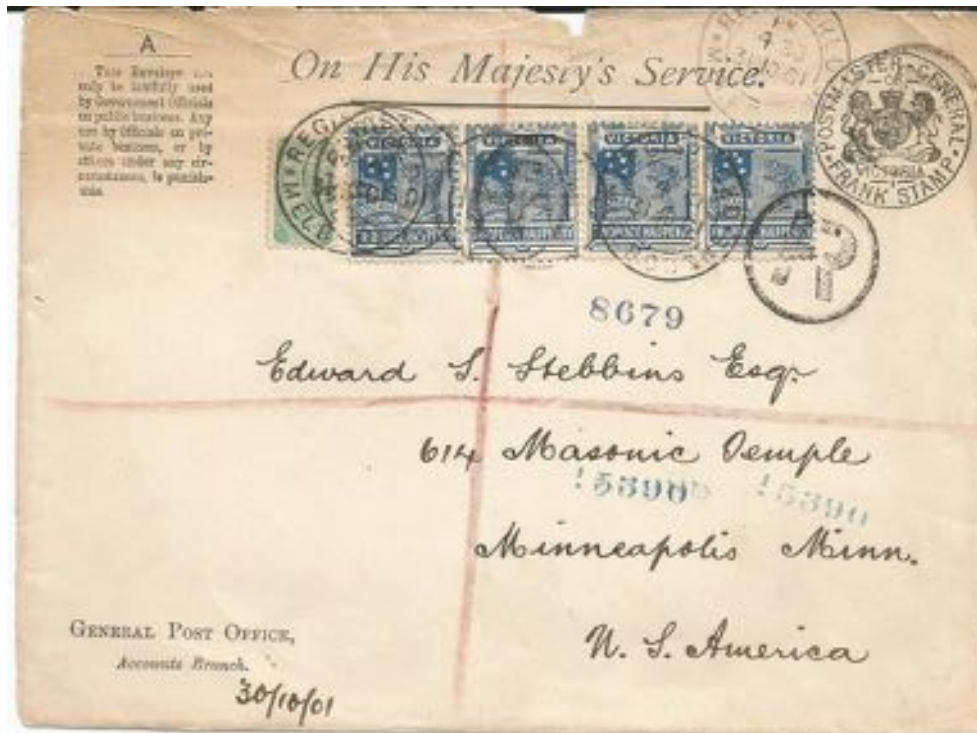 A
This Envelope can
only be lawfully used
by Government Officials
on public business. Any
use by Officials on pri-
vate business, or by
others under any cir-
cumstances, is punish-
able.
On His Majesty's Service.
POSTMASTER-GENERAL
VICTORIA
FRANK STAMP
VICTORIA
VICTORIA
VICTORIA
VICTORIA
R
8679
Edward S. Stebbins Esqr
614 Masonic Temple
15390
15390
Minneapolis Minn.
U. S. America
GENERAL POST OFFICE,
Accounts Branch.
30/10/01